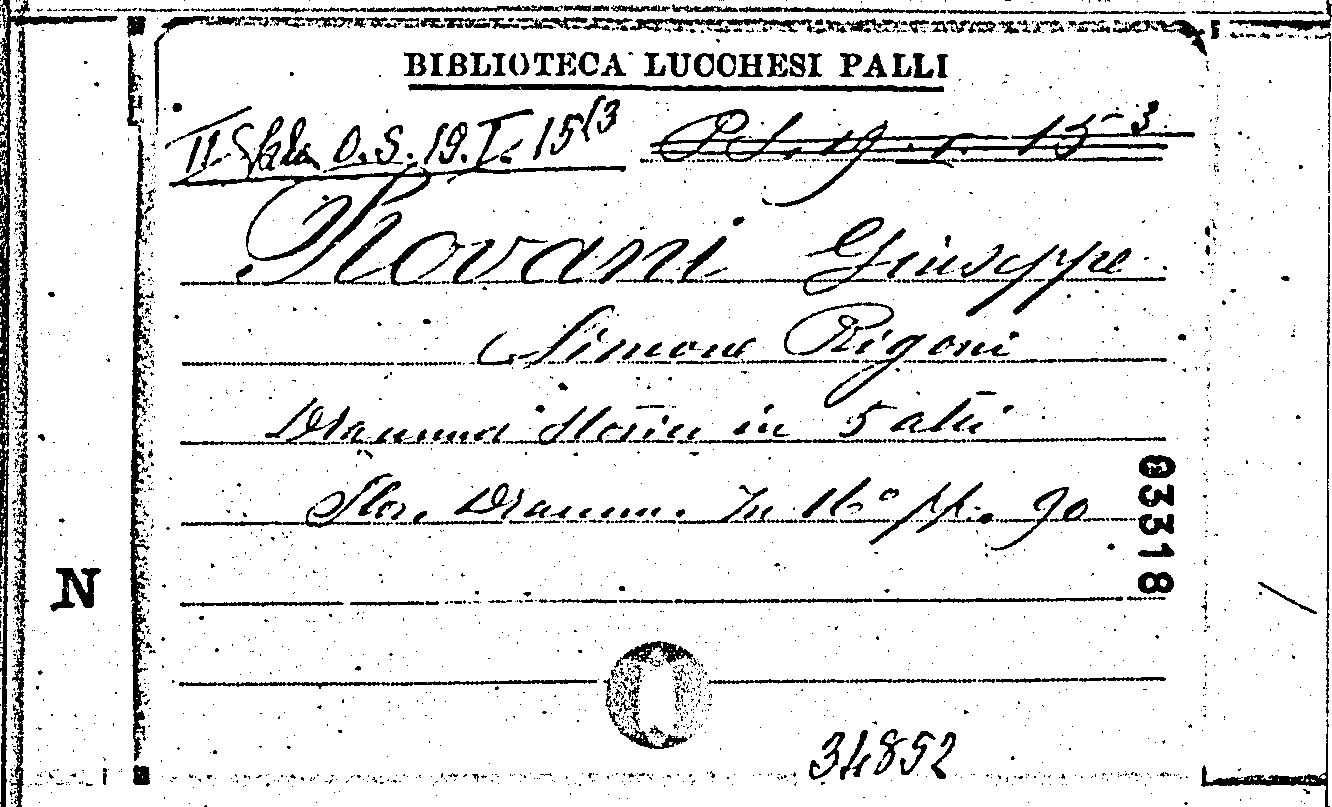 BIBLIOTECA LUCCHESI PALLI
II Sala O.S. 19. I. 15(3 P.S. 19. I. 15-3
Rovani Giuseppe
Simone Rigoni
Dramma storico in 5 atti
Flor. Dramm. In 16° pp. 90
03318
N
34852